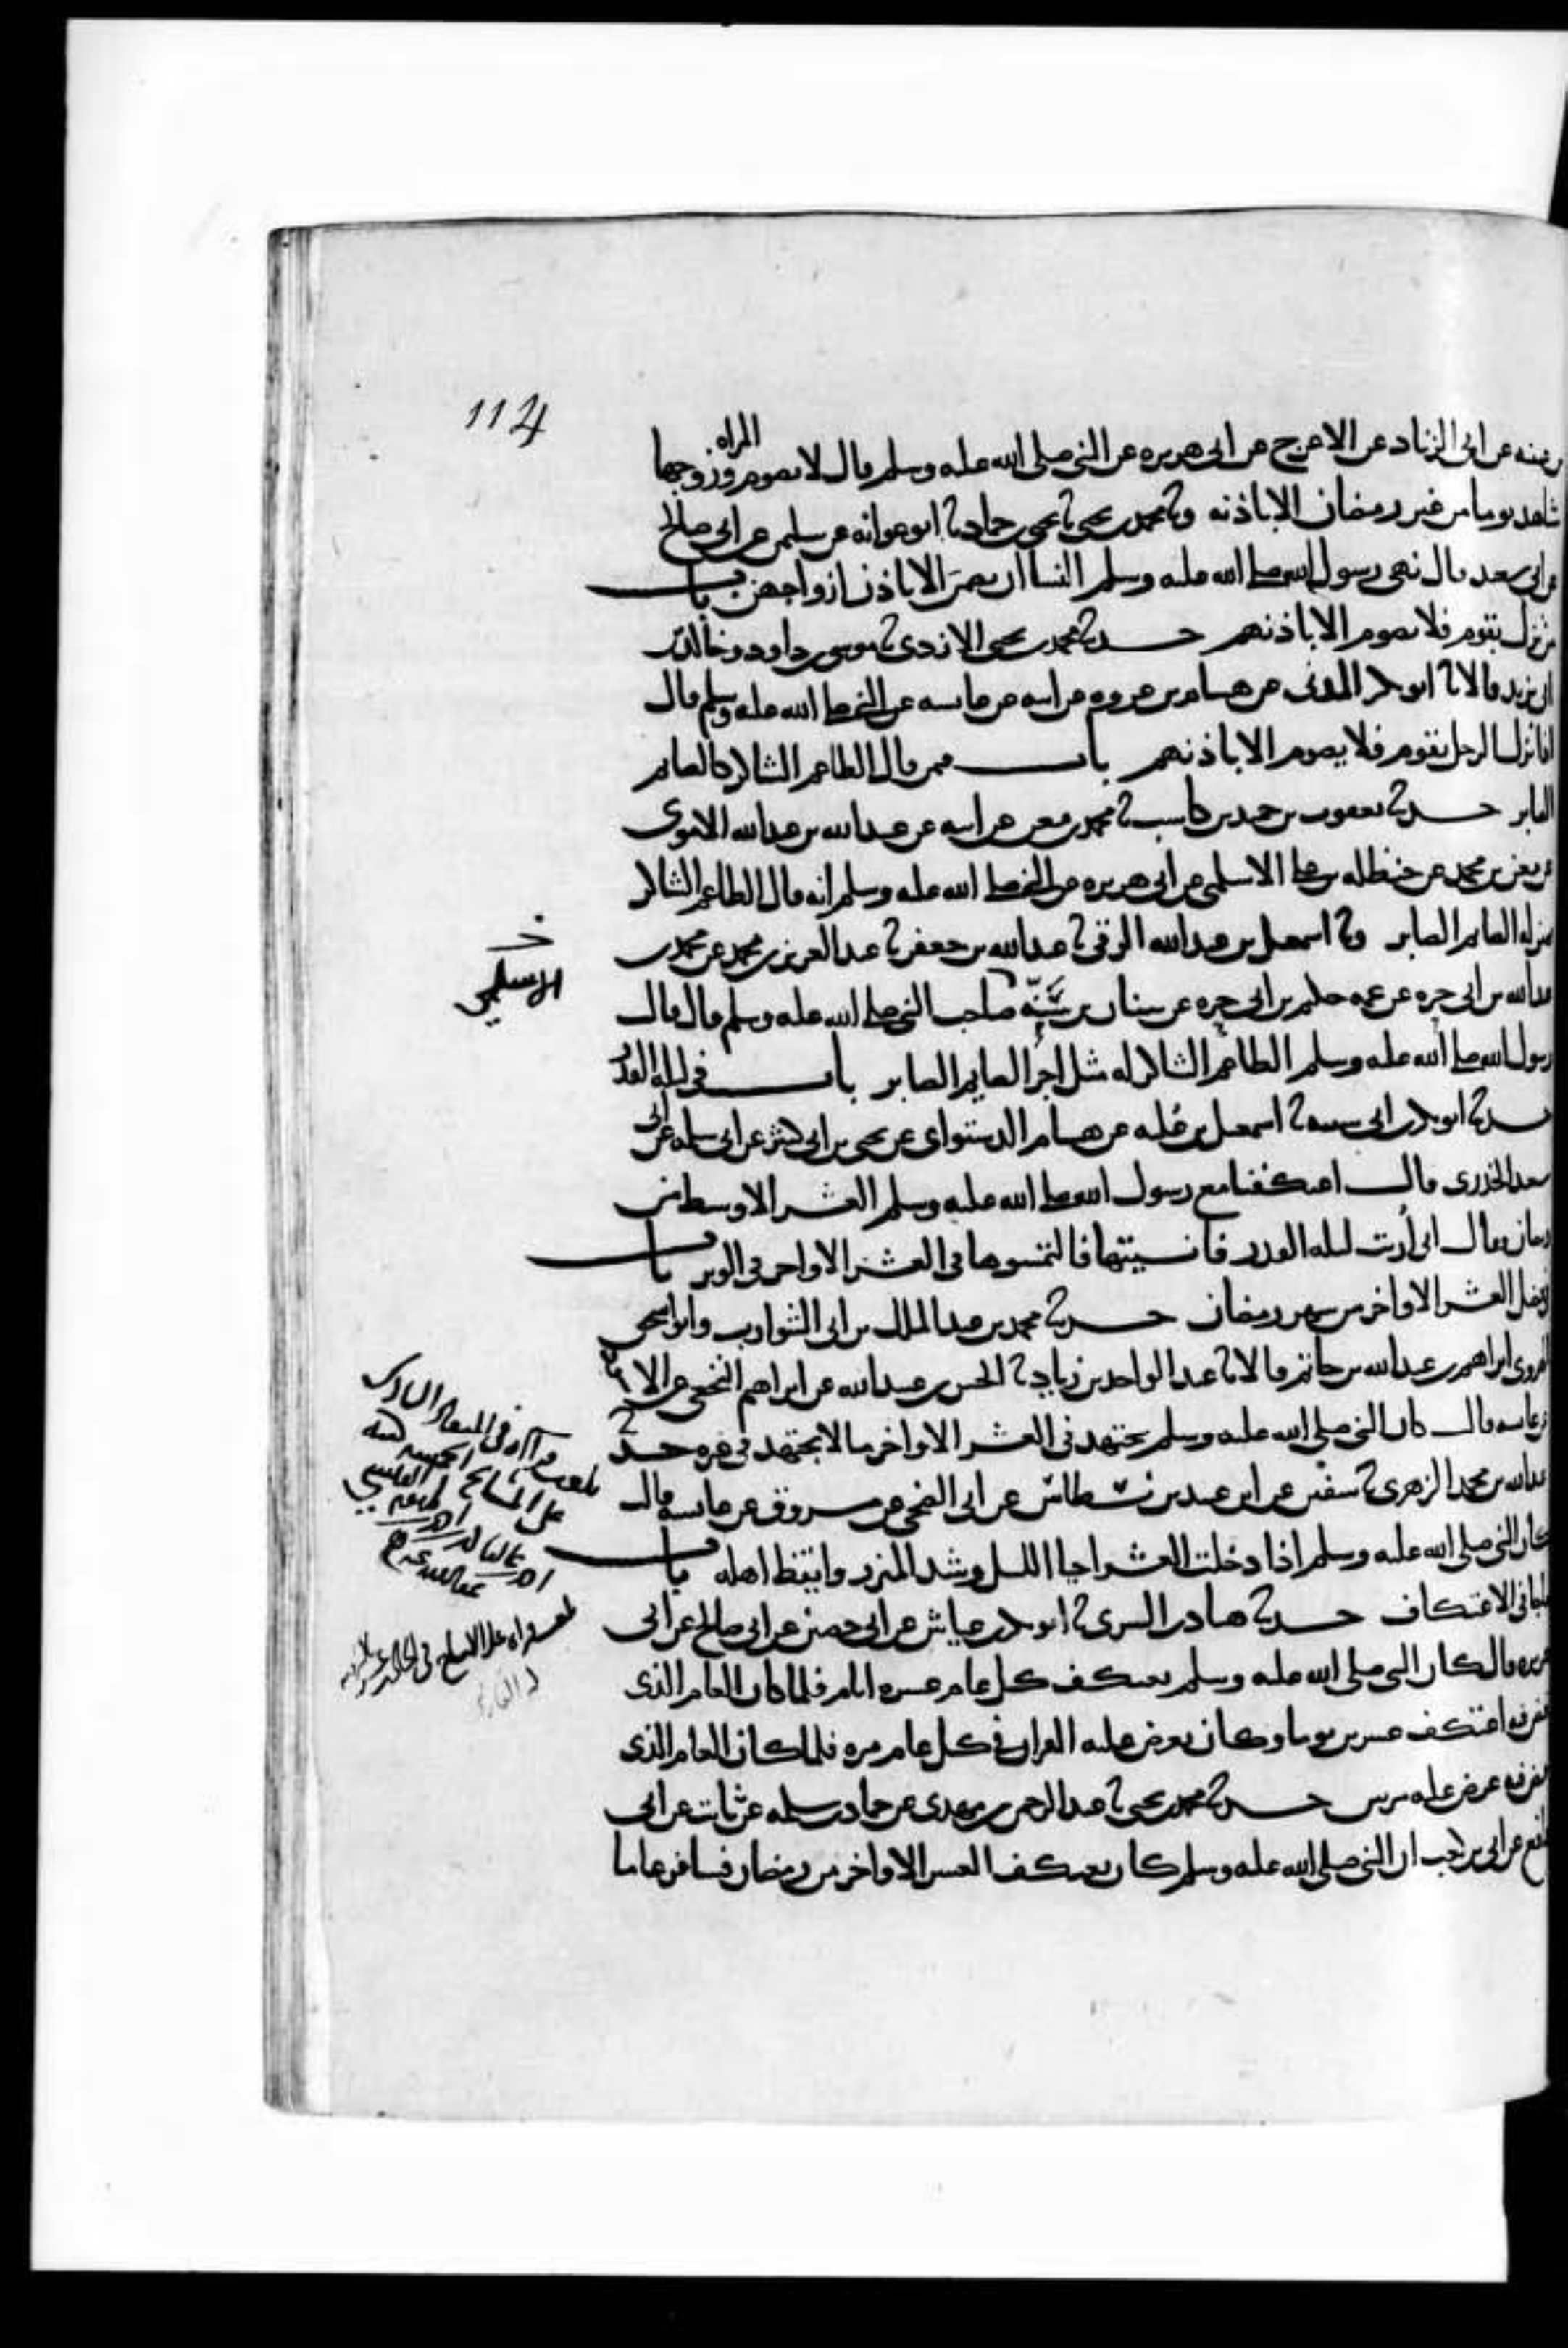 114
بن عيينه عن ابى الزناد عن الاعرج عن ابى هريره عن النبى صلى الله عليه وسلم قال لا تصوم المراه وزوجها
شاهد يوما من غير رمضان الا باذنه وثنا محمد بن يحيى ثنا يحيى بن حماد ثنا ابو عوانه عن سليمن عن ابى صالح
عن ابى سعيد قال نهى رسول الله صلى الله عليه وسلم النسا ان يصمن الا باذن ازواجهن باب
من نزل بقوم فلا يصوم الا باذنهم حدثنا محمد بن يحيى الازدى ثنا موسى بن داود وخالد بن
ابى يزيد قالا ثنا ابو بكر المدنى عن هشام بن عروه عن ابيه عن عايشه عن النبى صلى الله عليه وسلم قال
اذا نزل الرجل بقوم فلا يصوم الا باذنهم باب فيمن قال الطاعم الشاكر كالصايم
الصابر حدثنا يعقوب بن حميد بن كاسب ثنا محمد بن معن عن ابيه عن عبد الله بن عبد الله الاموى
عن معن بن محمد عن حنظله بن على الاسلمى عن ابى هريره عن النبى صلى الله عليه وسلم انه قال الطاعم الشاكر
بمنزله الصايم الصابر وثنا اسمعيل بن عبد الله الرقى ثنا عبد الله بن جعفر ثنا عبد العزيز بن محمد عن محمد بن
عبد الله بن ابى حره عن عمه حكيم بن ابى حره عن سنان بن سنه صاحب النبى صلى الله عليه وسلم قال قال
خ
الاسلمى
رسول الله صلى الله عليه وسلم الطاعم الشاكر له مثل اجر الصايم الصابر باب فى ليله القدر
حدثنا ابو بكر بن ابى شيبه ثنا اسمعيل بن عليه عن هشام الدستواى عن يحيى بن ابى كثير عن ابى سلمه عن ابى
سعيد الخدرى قال اعتكفنا مع رسول الله صلى الله عليه وسلم العشر الاوسط من
رمضان فقال انى اريت ليله القدر فانسيتها فالتمسوها فى العشر الاواخر فى الوتر باب
فى فضل العشر الاواخر من شهر رمضان حدثنا محمد بن عبد الملك بن ابى الشوارب وابو اسحق
الهروى ابراهيم بن عبد الله بن حاتم قالا ثنا عبد الواحد بن زياد ثنا الحسن بن عبيد الله عن ابراهيم النخعى عن الاسود
عن عايشه قالت كان النبى صلى الله عليه وسلم يجتهد فى العشر الاواخر ما لا يجتهد فى غيره حدثنا
عبد الله بن محمد الزهرى ثنا سفين عن ابن عبيد بن نسطاس عن ابى الضحى عن مسروق عن عايشه قالت
كان النبى صلى الله عليه وسلم اذا دخلت العشر احيا الليل وشد المئزر وايقظ اهله باب
ما جا فى الاعتكاف حدثنا هناد بن السرى ثنا ابو بكر بن عياش عن ابى حصين عن ابى صالح عن ابى
هريره قال كان النبى صلى الله عليه وسلم يعتكف كل عام عشره ايام فلما كان العام الذى
قبض فيه اعتكف عشرين يوما وكان يعرض عليه القران فى كل عام مره فلما كان العام الذى
قبض فيه عرض عليه مرتين حدثنا محمد بن يحيى ثنا عبد الرحمن بن مهدى عن حماد بن سلمه عن ثابت عن ابى
رافع عن ابى بن كعب ان النبى صلى الله عليه وسلم كان يعتكف العشر الاواخر من رمضان فسافر عاما